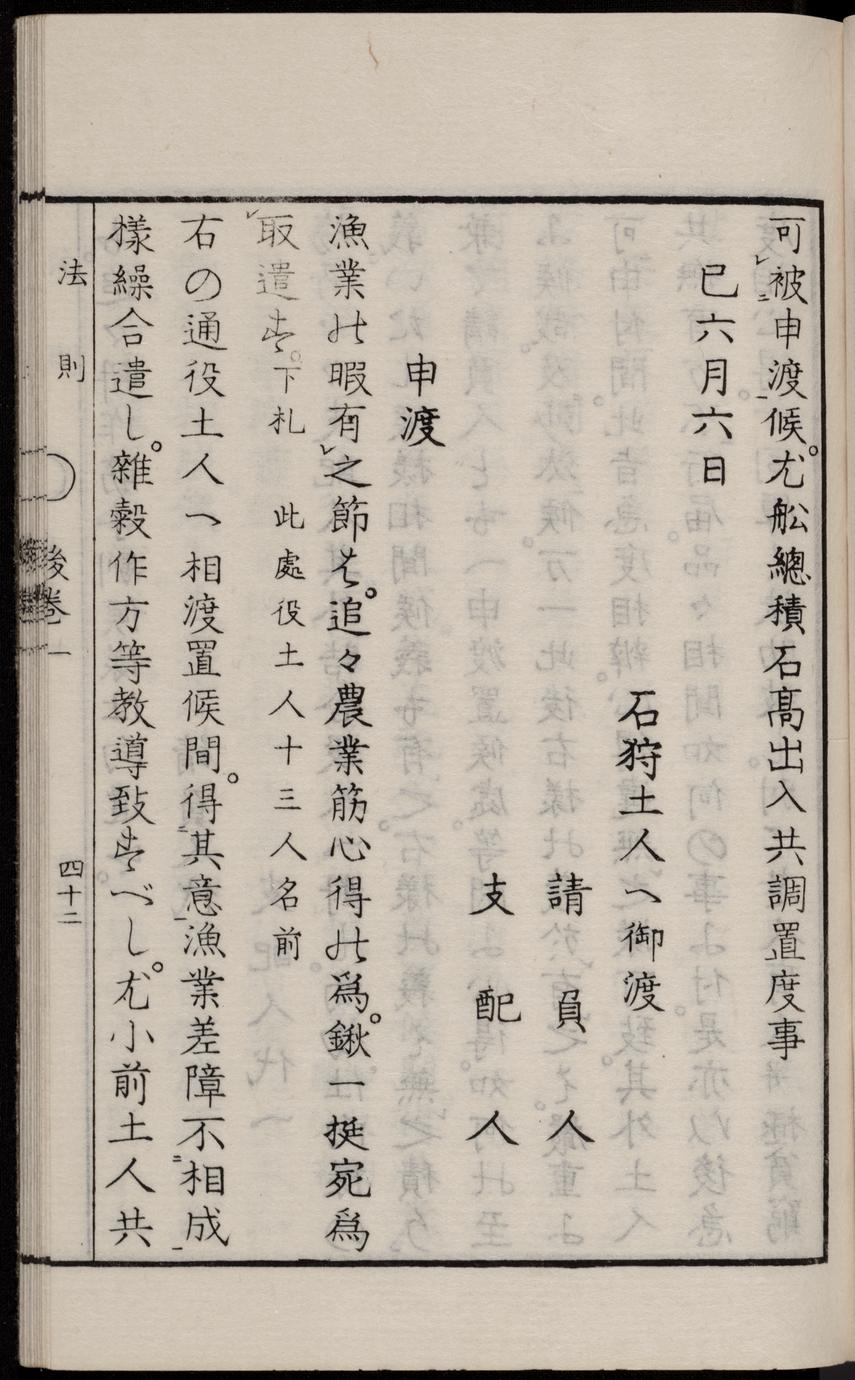 可被申渡候。尤舩總積石高出入共調置度事
巳六月六日
石狩土人へ御渡
請負人
支配人
申渡
漁業此暇有之節は。追々農業筋心得此爲。鍬一挺宛爲
取遣す。下札 此處役土人十三人名前
右の通役土人へ相渡置候間。得其意漁業差障不相成
樣繰合遣し。雜穀作方等教導致すべし。尤小前土人共
法則 後卷一 四十二